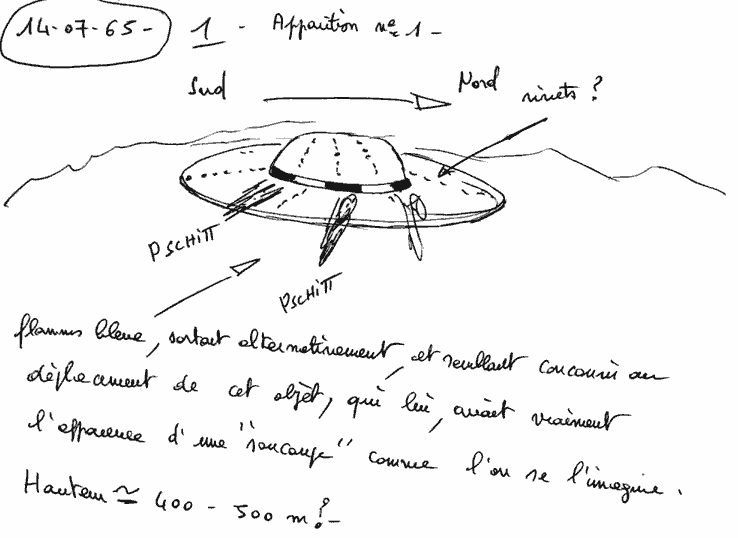 14-07-65-
1 - Apparition nº 1 -
Sud
Nord
rivets ?
PSCHITT
PSCHITT
flammes bleue, sortant alternativement, et semblant concourir au
déplacement de cet objet, qui lui, avait vraiment
l'apparence d'une "soucoupe" comme l'on se l'imagine.
Hauteur ≃ 400 - 500 m ? -